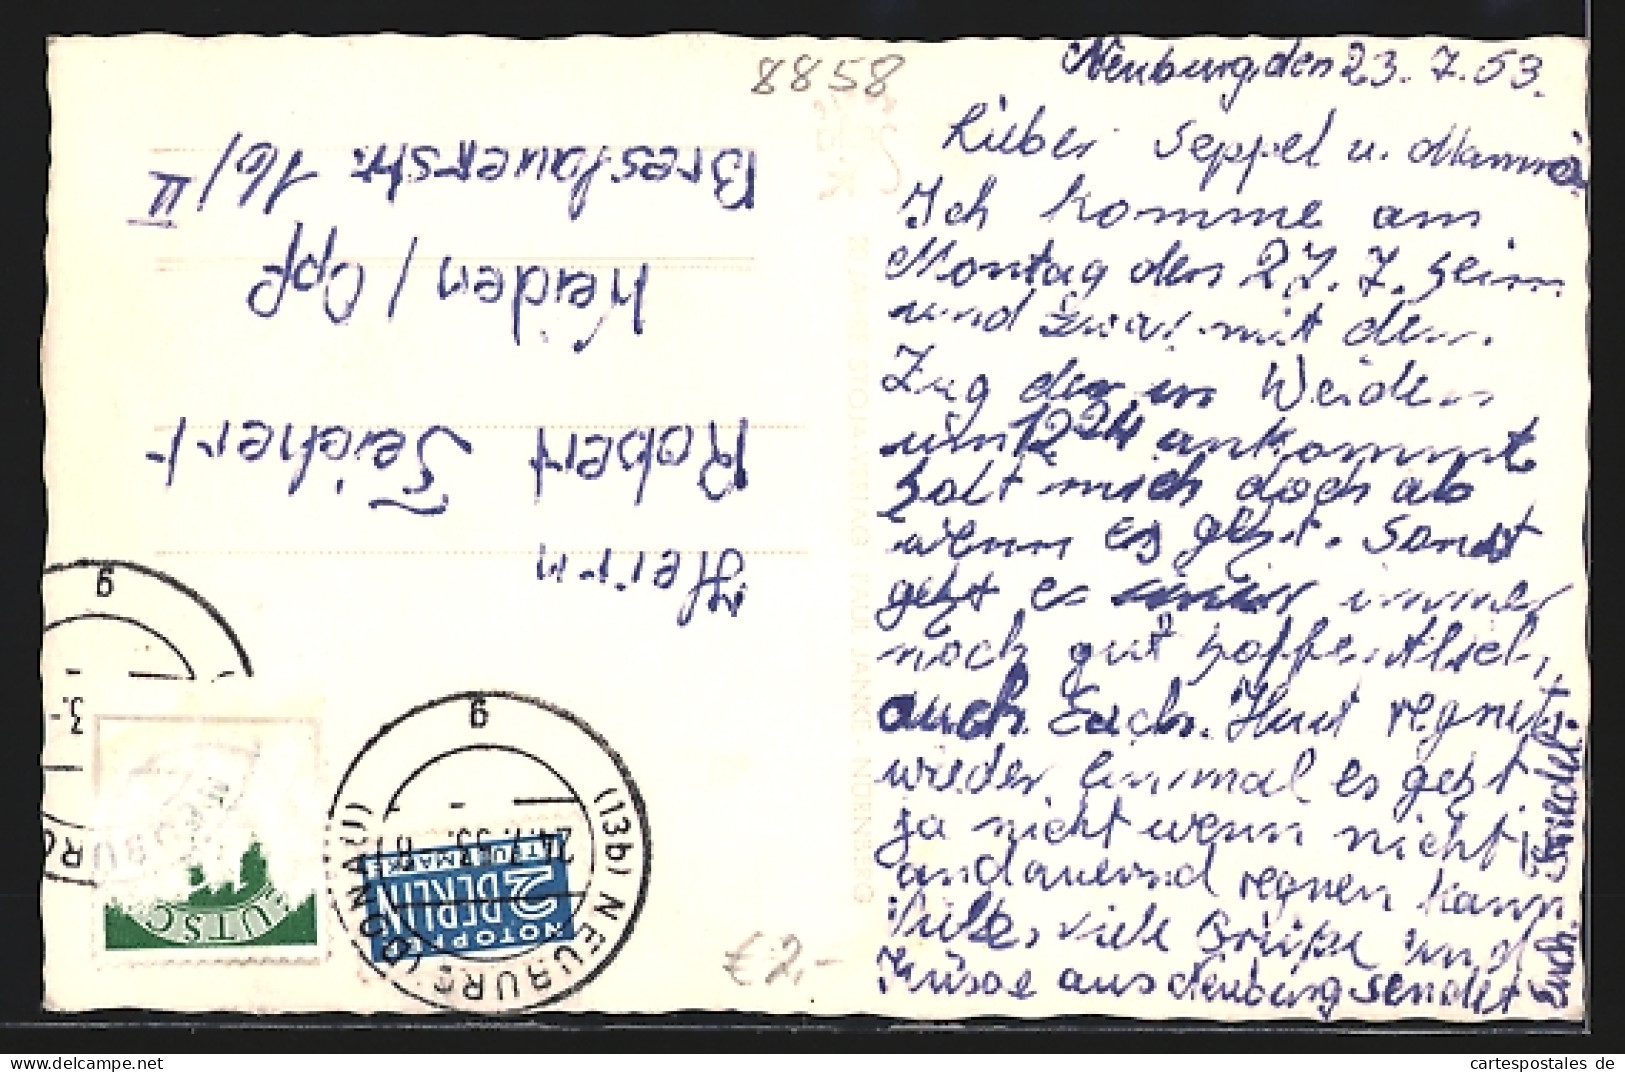 8858
Neuburg, den 23.7.53.
Lieber Seppel u. Mamma
Ich komme am
Montag den 27.7. heim
und zwar mit dem
Zug der in Weiden
um 12 24 ankommt
holt mich doch ab
wenn es geht. Sonst
geht es mir immer
noch gut hoffentlich,
auch Euch. Heut regnets
wieder einmal es geht
ja nicht wenn nicht
andauernd regnen kann.
viele Grüße und
Küsse aus Neuburg sendet
Euch
Herrn
Robert Teichert
Weiden / Opf
Breslauerstr. 16/II
(13b) NEUBURG (DONAU)
24.7.53.
g
NOTOPFER
2 BERLIN
STEUERMARKE
UTSC
g
3.-
€2,-
VERLAG PAUL JANKE NÜRNBERG
www.cartespostales.eu
cartespostales de